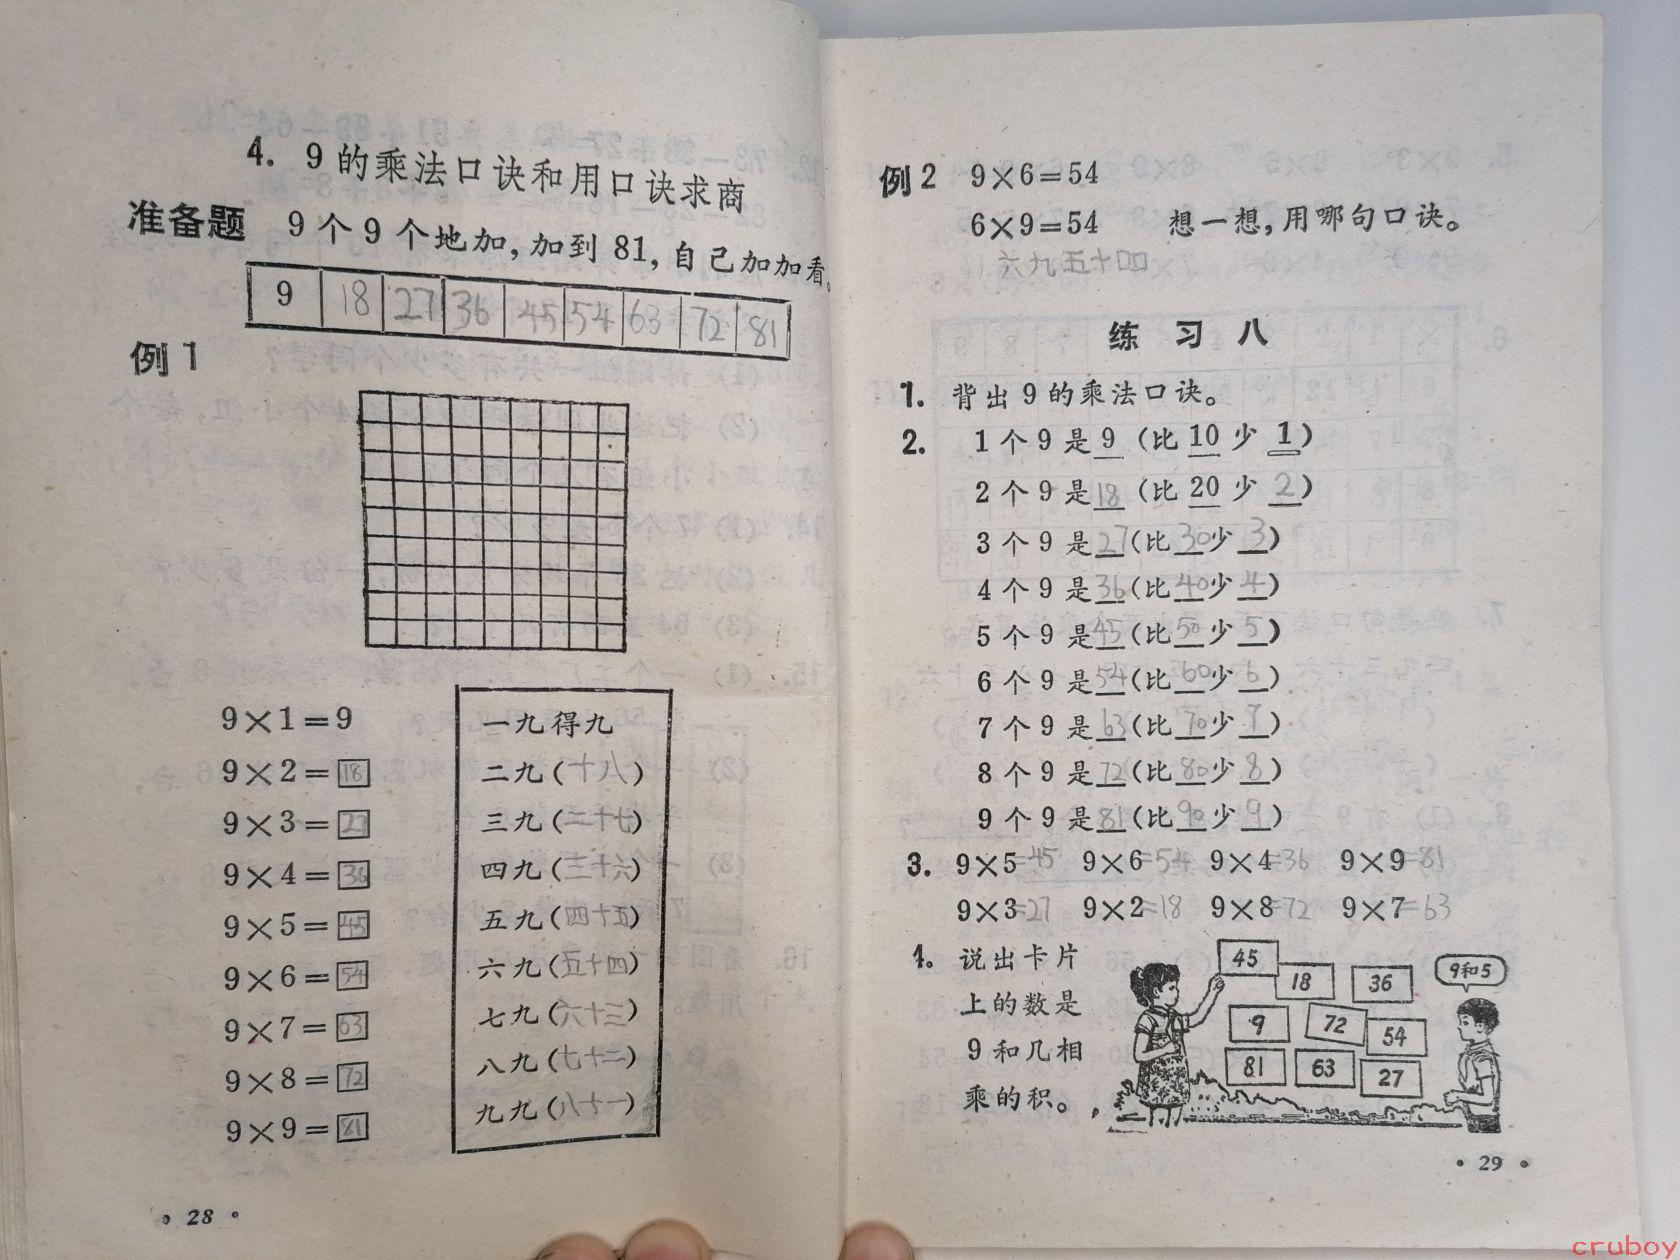 4. 9的乘法口诀和用口诀求商
准备题 9个9个地加,加到81,自己加加看。
9 18 27 36 45 54 63 72 81
例1
9×1=9
9×2=18
9×3=27
9×4=36
9×5=45
9×6=54
9×7=63
9×8=72
9×9=81
一九得九
二九(十八)
三九(二十七)
四九(三十六)
五九(四十五)
六九(五十四)
七九(六十三)
八九(七十二)
九九(八十一)
·28·
例2 9×6=54
6×9=54 想一想,用哪句口诀。
六九五十四
练习八
1. 背出9的乘法口诀。
2. 1个9是9(比10少1)
2个9是18(比20少2)
3个9是27(比30少3)
4个9是36(比40少4)
5个9是45(比50少5)
6个9是54(比60少6)
7个9是63(比70少7)
8个9是72(比80少8)
9个9是81(比90少9)
3. 9×5=45 9×6=54 9×4=36 9×9=81
9×3=27 9×2=18 9×8=72 9×7=63
4. 说出卡片
上的数是
9和几相
乘的积。
45 18 36
9 72 54
81 63 27
9和5
·29·
cruboy